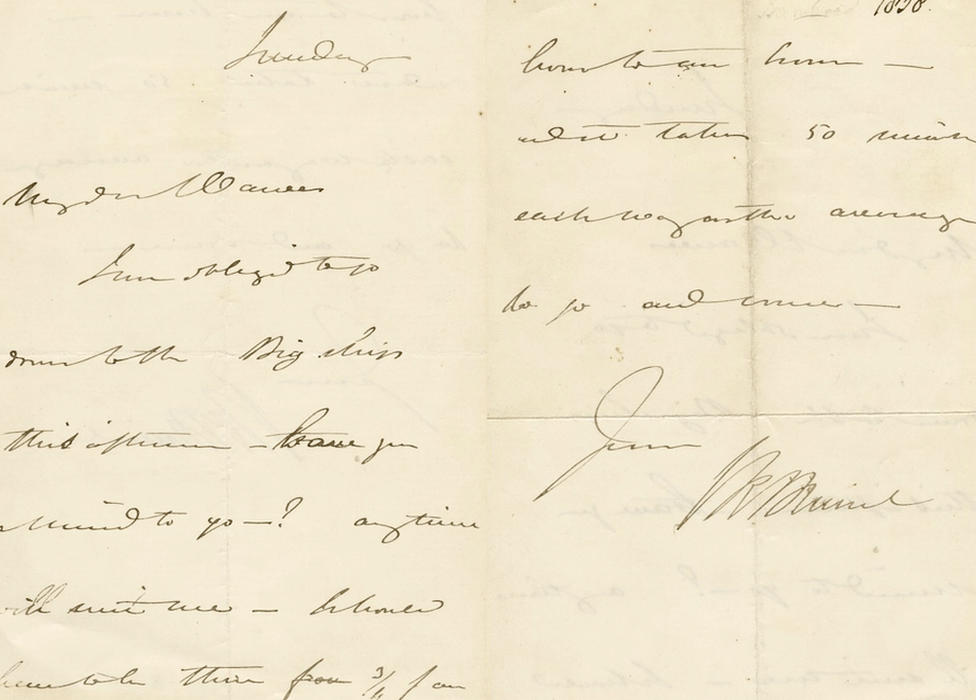 Sunday
My dear Wances
I am obliged to go
down to the Big ship
this afternoon — have you
a mind to go —? anytime
will suit me — I should
have to be there from 3/4 of an
1858.
hour to an hour —
and it takes 50 minutes
each way on the average
to go and come —
Yours
I K Brunel